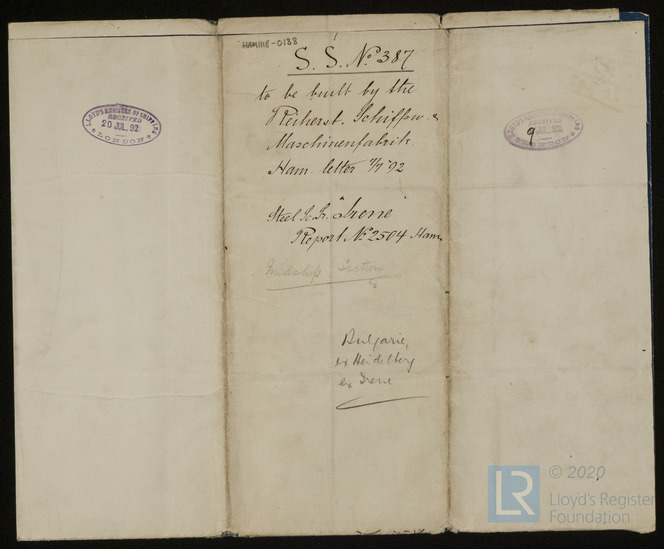 HAM1118-0188
S. S. No 387
to be built by the
Reiherst. Schiffw. &
Maschinenfabrik
Ham. letter 7/7 92
Steel Sc Sr. "Irene"
Report No 2504 Ham
Midship Section
Bulgarie,
ex Heidelberg
ex Irene
LLOYD'S REGISTER OF SHIPPING
RECEIVED
20 JUL. 92
LONDON
9
RECEIVED
LONDON
LR
© 2020
Lloyd's Register
Foundation